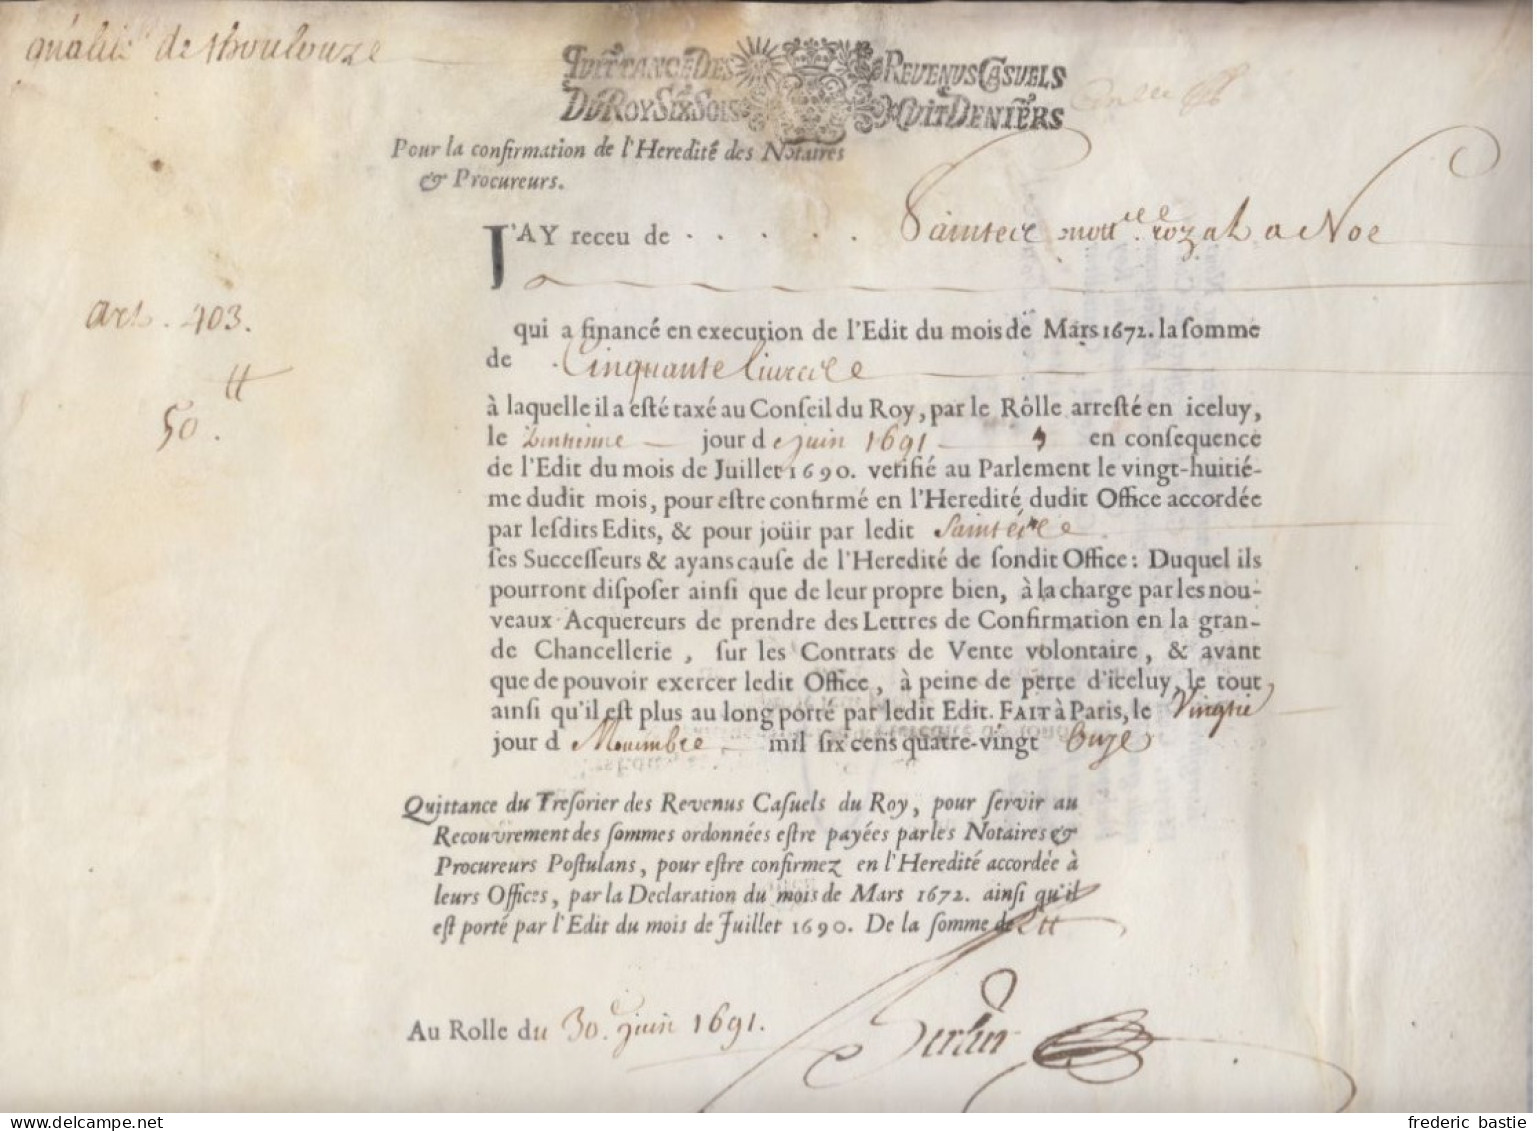 de Thoulouze
QUITTANCE DES REVENUS CASUELS
DU ROY SIX SOLS HUIT DENIERS
Pour la confirmation de l'Heredité des Notaires
& Procureurs.
J'AY receu de . . . . . La Noe
Art. 403.
qui a financé en execution de l'Edit du mois de Mars 1672. la somme
de Cinquante livres
50.
à laquelle il a esté taxé au Conseil du Roy, par le Rôlle arresté en iceluy,
le trentieme jour de juin 1691 en consequence
de l'Edit du mois de Juillet 1690. verifié au Parlement le vingt-huitié-
me dudit mois, pour estre confirmé en l'Heredité dudit Office accordée
par lesdits Edits, & pour joüir par ledit
ses Successeurs & ayans cause de l'Heredité de sondit Office: Duquel ils
pourront disposer ainsi que de leur propre bien, à la charge par les nou-
veaux Acquereurs de prendre des Lettres de Confirmation en la gran-
de Chancellerie, sur les Contrats de Vente volontaire, & avant
que de pouvoir exercer ledit Office, à peine de perte d'iceluy, le tout
ainsi qu'il est plus au long porté par ledit Edit. FAIT à Paris, le
jour d Nouembre mil six cens quatre-vingt Onze
Quittance du Tresorier des Revenus Casuels du Roy, pour servir au
Recouvrement des sommes ordonnées estre payées par les Notaires &
Procureurs Postulans, pour estre confirmez en l'Heredité accordée à
leurs Offices, par la Declaration du mois de Mars 1672. ainsi qu'il
est porté par l'Edit du mois de Juillet 1690. De la somme de
Au Rolle du 30. juin 1691.
Bertin
frederic bastie